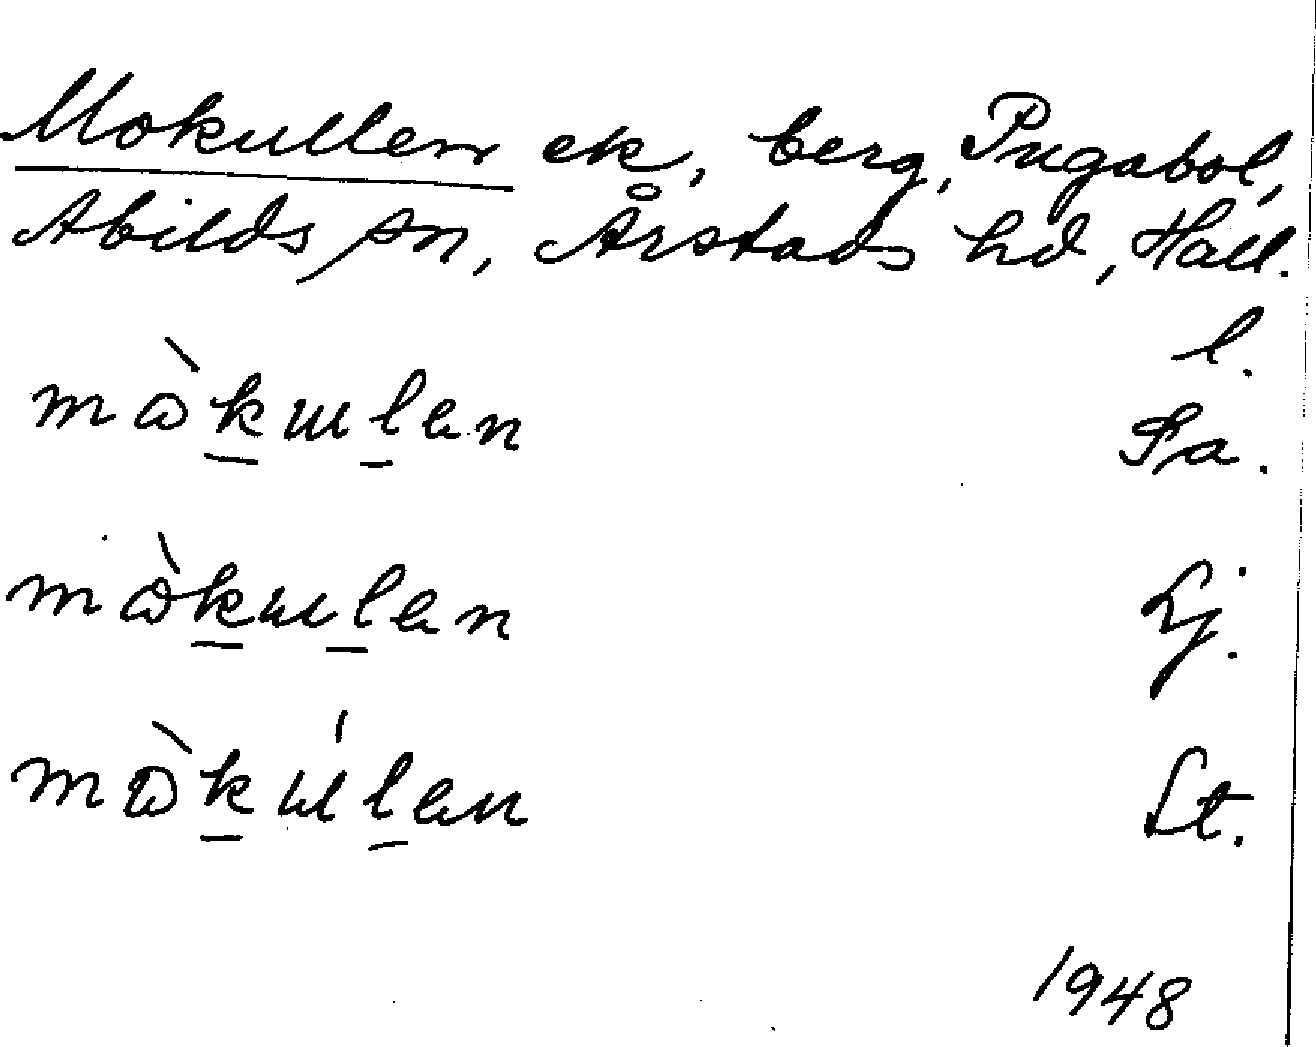 Mokullen ek, berg, Pugabol,
Abilds sn, Årstads hd, Hall.
l.
mɷ̀kɯlen Pa.
mɷ̀kɯlen Lj.
mɷ̀kɯ́len St.
1948